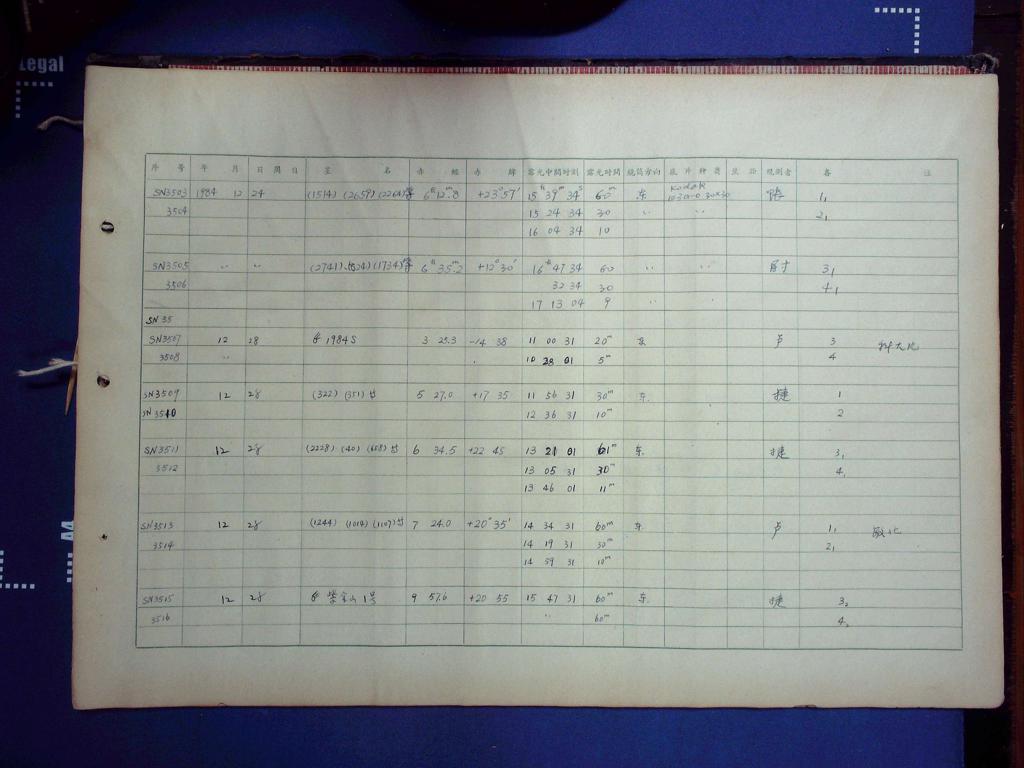 Legal
片 号 年 月 日 周 日 星 名 赤 经 赤 纬 露光中间时刻 露光时间 镜筒方向 底片种类 观测者 备 注
SN3503 1984 12 24 (1514) (2659) (2264)等 6h 12m.8 +23°57' 15h 39m 34s 60m 东 Kodak 103a-O 30×30 1,
3504 15 24 34 30 〃 〃 2,
16 04 34 10
SN3505 〃 〃 (2741) (1734)等 6h 35m.2 +12°30' 16h 47 34 60 〃 〃 3,
3506 32 34 30 4,
17 13 04 9 〃
SN35
SN3507 12 28 1984S 3 25.3 -14 38 11 00 31 20m 东 卢 3
3508 〃 10 28 01 5m 4
SN3509 12 28 (322) (351) 5 27.0 +17 35 11 56 31 30m 东 捷 1
SN3510 12 36 31 10m 2
SN3511 12 28 (2228) (40) (608) 6 34.5 +22 45 13 21 01 61m 东 捷 3,
3512 13 05 31 30m 4,
13 46 01 11m
SN3513 12 28 (1244) (1014) (1107) 7 24.0 +20°35' 14 34 31 60m 东 卢 1,
3514 14 19 31 30m 2,
14 59 31 10m
SN3515 12 28 紫金山1号 9 57.6 +20 55 15 47 31 60m 东 捷 3,
3516 〃 60m 4,